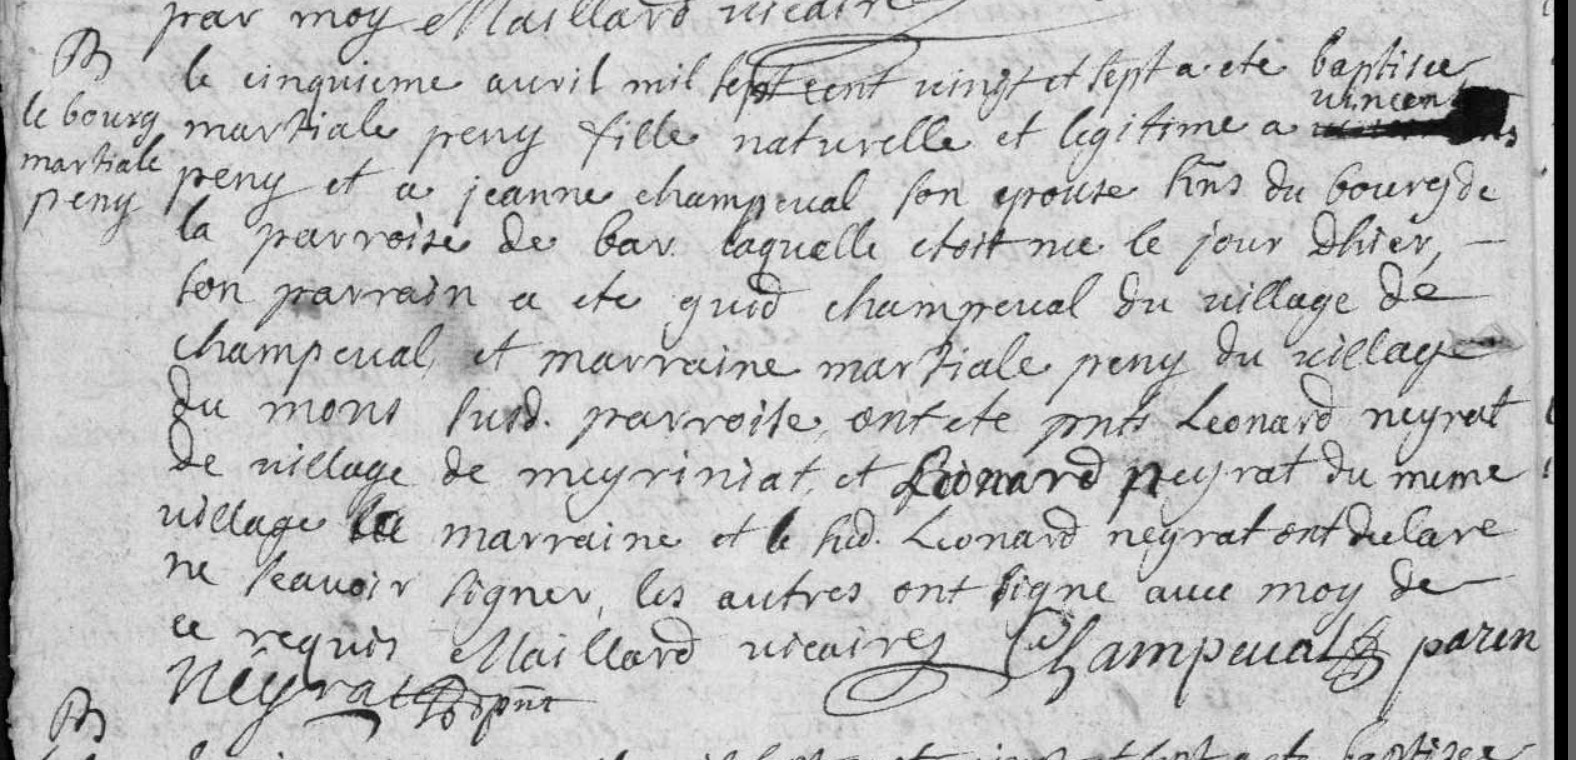 par moy Maillard vicaire
B
le cinquieme avril mil sept cent vingt et sept a ete baptisee
le bourg
martiale
peny
vincent
martiale peny fille naturelle et legitime a
peny et a jeanne champeval son epouse hñs du bourg de
la parroise de bar laquelle etoit nee le jour Dhier, —
son parrain a ete guid champeval du village de
champeval, et marraine martiale peny du village
du mons susd. parroise, ont ete pnts Leonard neyrat
de village de meyriniat, et Leonard neyrat du meme
village la marraine et le sud. Leonard negrat ont declare
ne scavoir signer, les autres ont signe avec moy de
ce requis Maillard vicaire Champeval parin
Nêyrat pñt
B